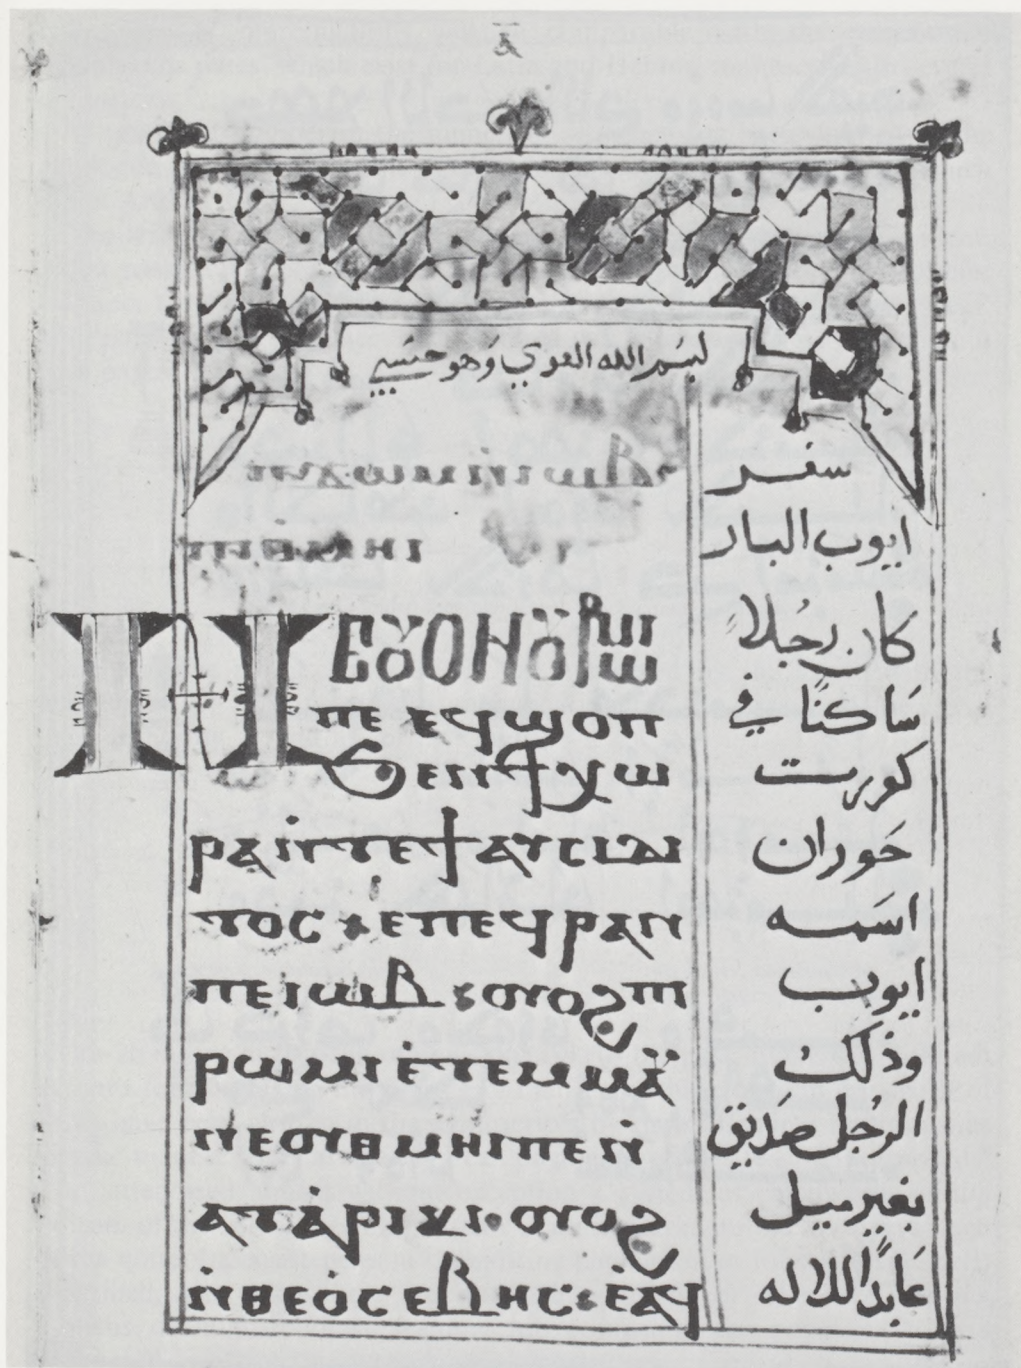 ⲁ̅
بسم الله القوي وهو حسبي
ⲡⲓⲑⲙⲏⲓ
ⲛⲉⲟⲩⲟⲛ ⲟⲩⲣⲱ
ⲙⲓ
ⲡⲉ ⲉϥϣⲟⲡ
ϧⲉⲛϯⲭⲱ
ⲣⲁⲛ̀ⲧⲉϯⲁⲩⲥⲓⲇⲓ
ⲧⲟⲥ ⲉⲡⲉϥⲣⲁⲛ
ⲡⲉⲓⲱⲃ ⲟⲩⲟϩⲡⲓ
ⲣⲱⲙⲓ ⲉ̀ⲧⲉⲙⲙⲁⲩ
ⲛⲉⲟⲩⲑⲙⲏⲓⲡⲉⲛ̀
ⲁⲧⲁ̀ⲣⲓⲕⲓ ⲟⲩⲟϩ
ⲛ̀ⲑⲉⲟ̀ⲥⲉⲃⲏⲥ ⲉ̀ⲁϥ
سفر
ايوب البار
كان رجلا
ساكنًا في
كورت
حوران
اسمه
ايوب
وذلك
الرجل صديق
بغير ميل
عابدًا للاله